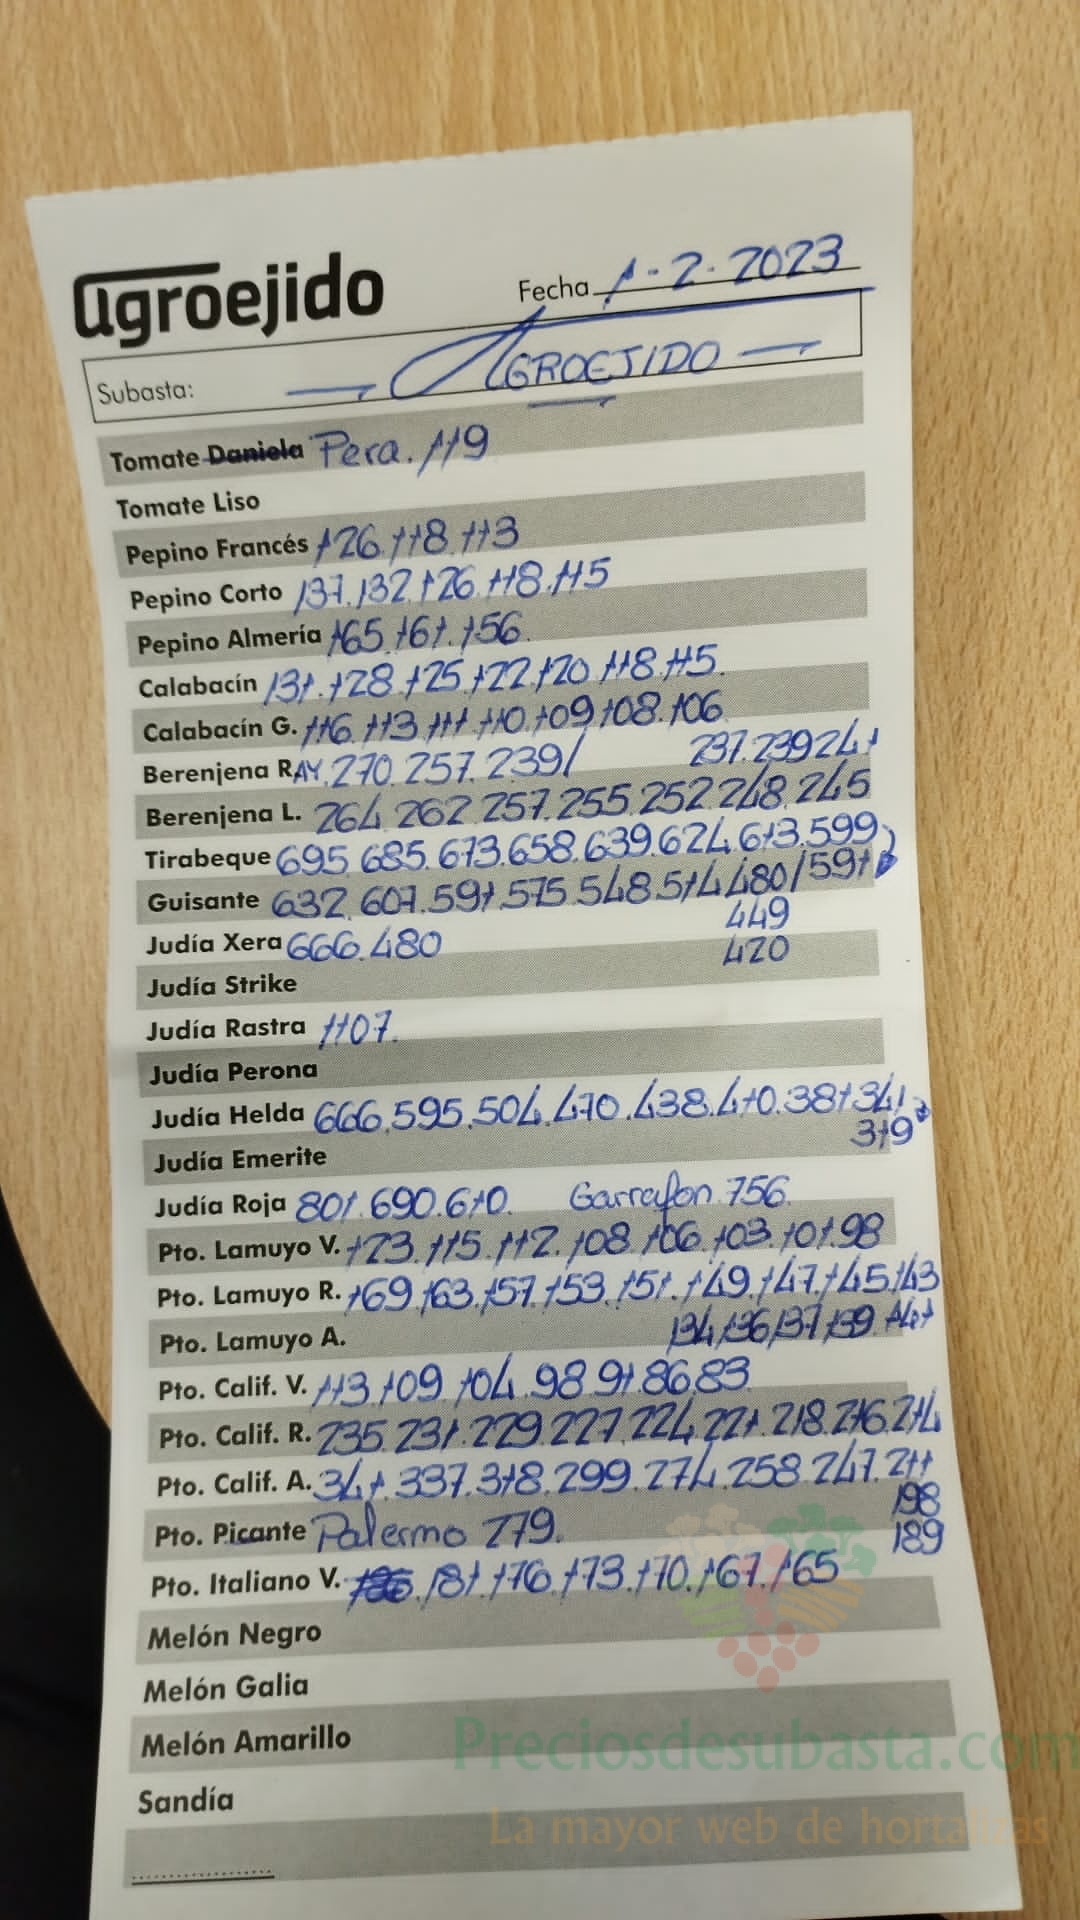 agroejido
Fecha 1-2-2023
Subasta: AGROEJIDO
Tomate Daniela Pera. 119
Tomate Liso
Pepino Francés 126.118.113
Pepino Corto 137.132.126.118.115
Pepino Almería 165.161.156.
Calabacín 131.128.125.122.120.118.115.
Calabacín G. 116.113.111.110.109.108.106
Berenjena RAY.270.257.239/ 237.239 241
Berenjena L. 264.262.257.255.252 248.245
Tirabeque 695.685.673.658.639.624.613.599
Guisante 632.607.591.575.548.514.480/591
449
Judía Xera 666.480
420
Judía Strike
Judía Rastra 1107.
Judía Perona
Judía Helda 666.595.504.470.438.410.381 341
319
Judía Emerite
Judía Roja 801.690.610. Garrafon 756.
Pto. Lamuyo V. 123.115.112.108.106.103.101.98
Pto. Lamuyo R. 169.163.157.153.151.149.147.145.143
Pto. Lamuyo A. 134.136.137.139.141
Pto. Calif. V. 113.109.104.98.91.86.83
Pto. Calif. R. 235.231.229.227.224.221.218.216.214
Pto. Calif. A. 341.337.318.299.274.258.247.211
198
Pto. Picante Palermo 279.
189
Pto. Italiano V. 186.181.176.173.170.167.165
Melón Negro
Melón Galia
Melón Amarillo
Preciosdesubasta.com
Sandía
La mayor web de hortalizas